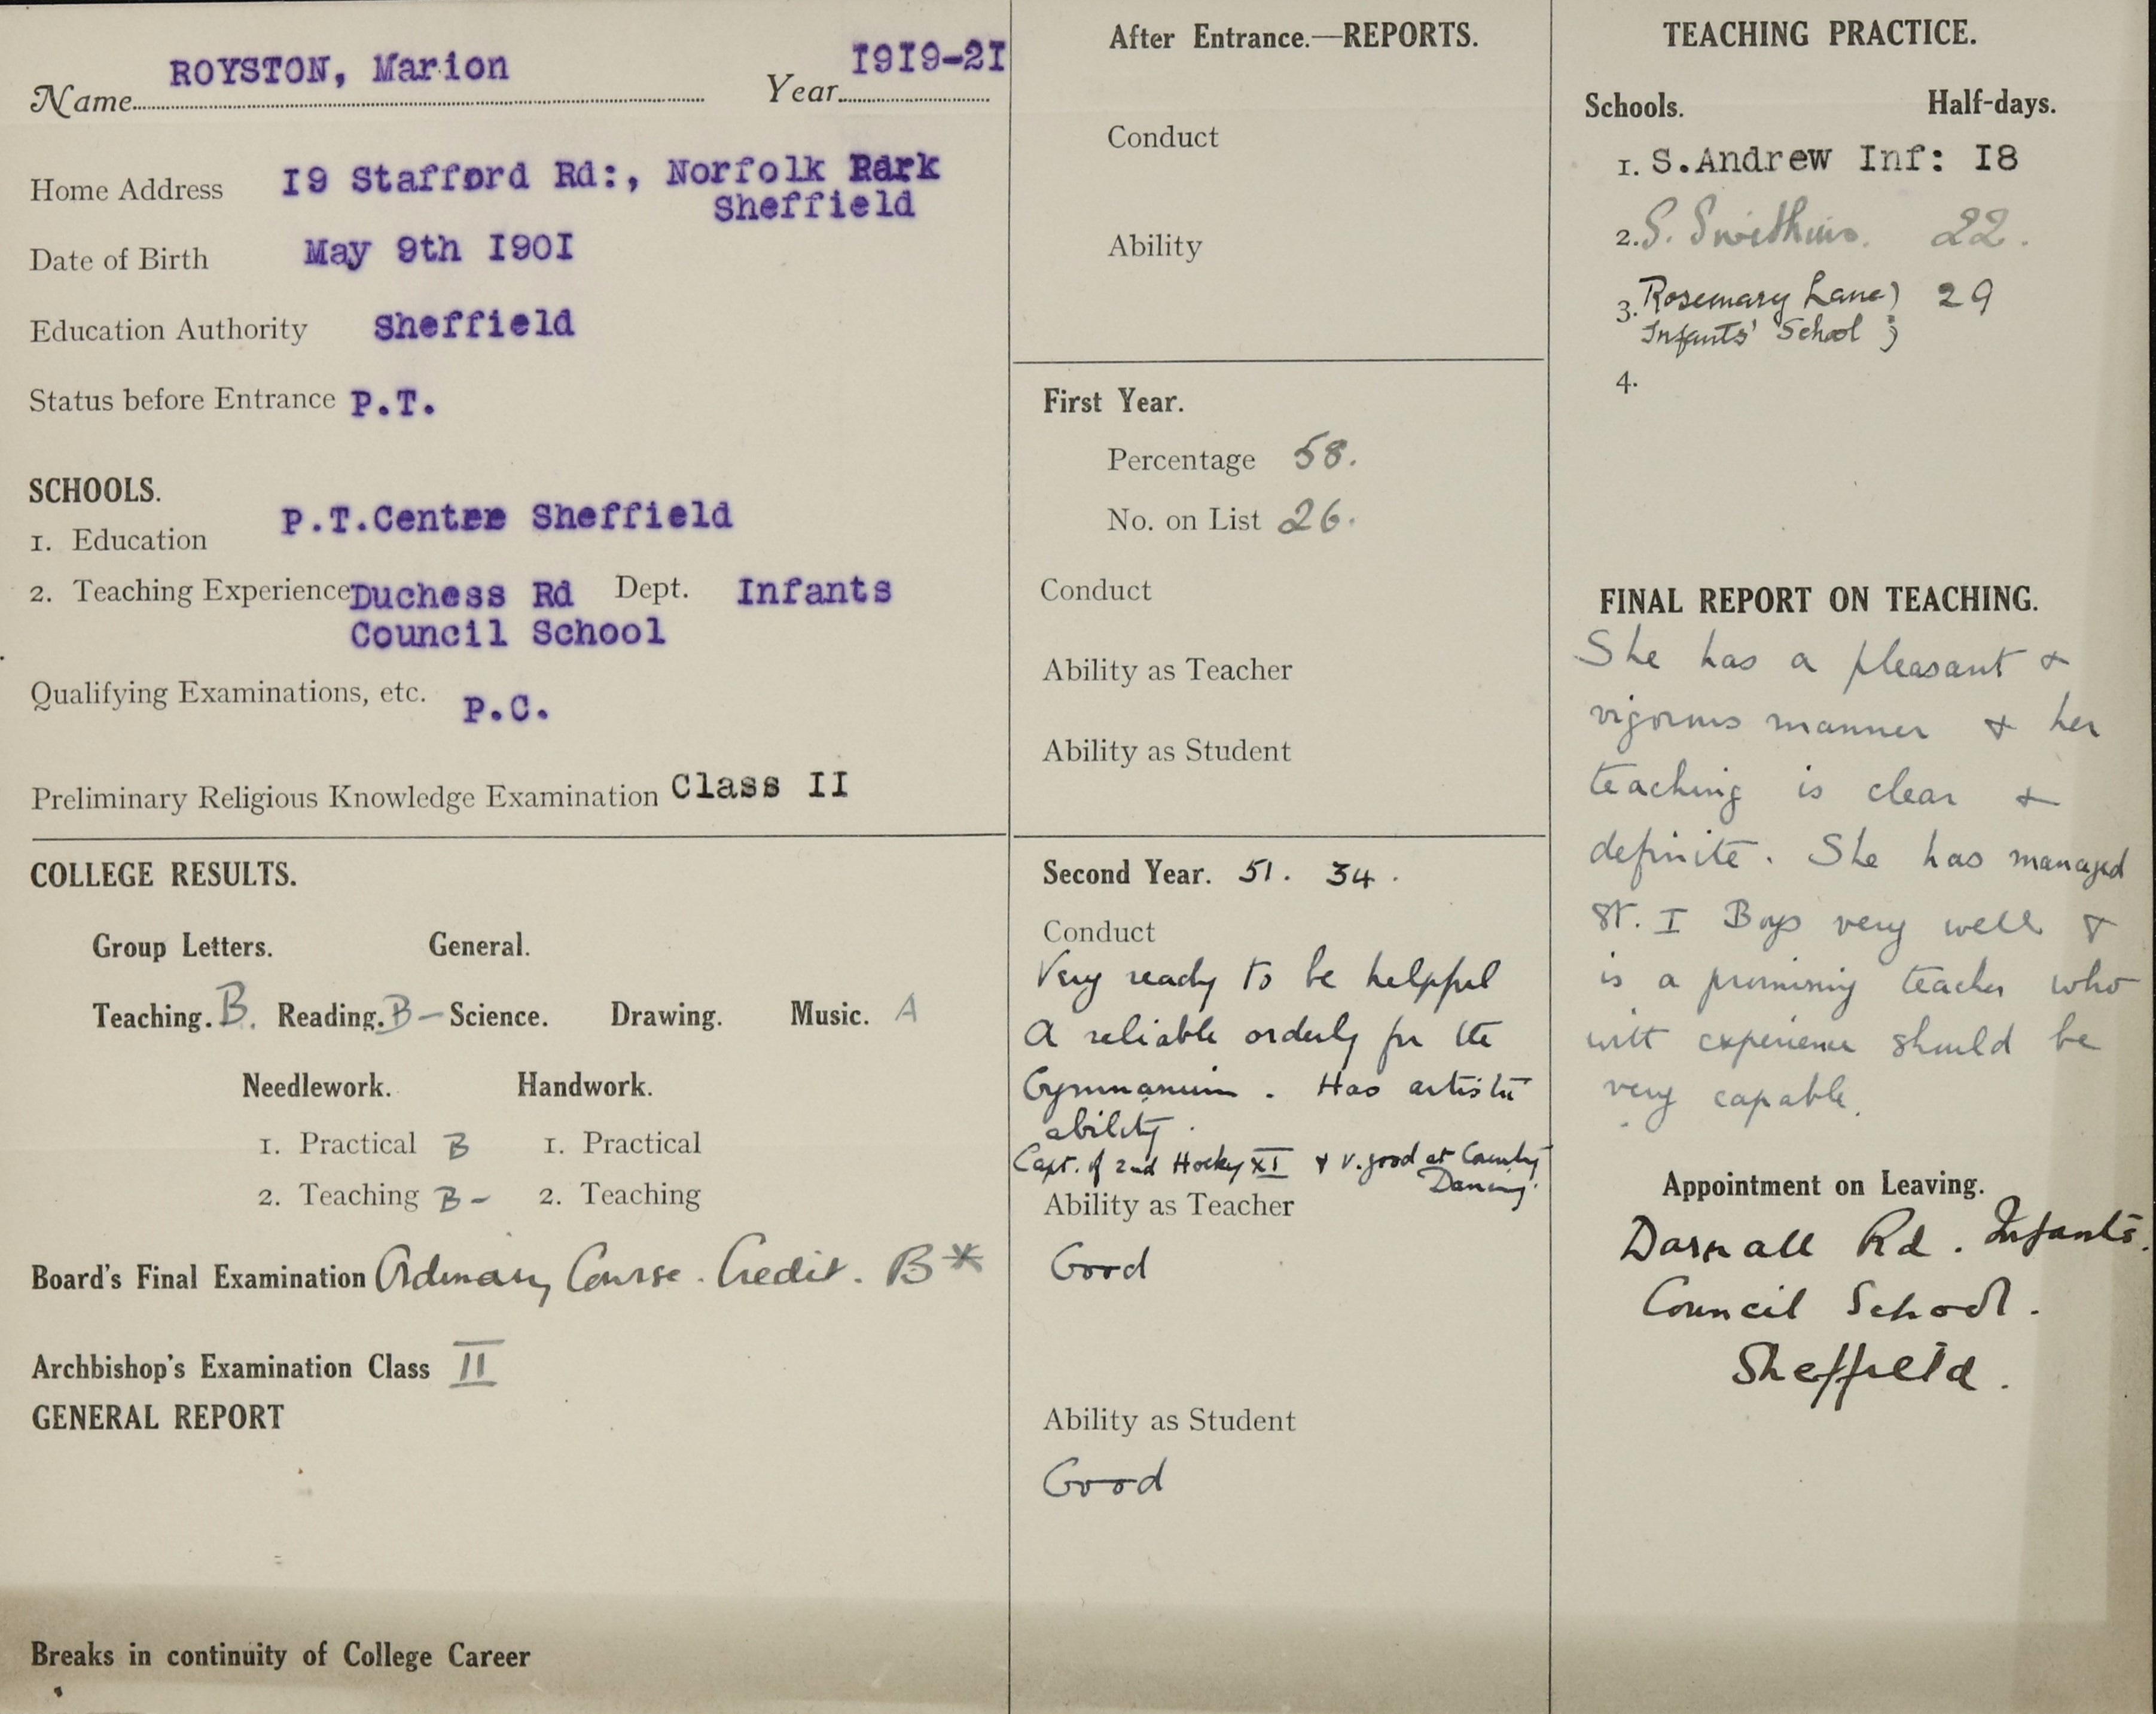 Name ROYSTON, Marion Year 1919-21
Home Address 19 Stafford Rd:, Norfolk Park
Sheffield
Date of Birth May 9th 1901
Education Authority Sheffield
Status before Entrance P.T.
SCHOOLS.
1. Education P.T.Centre Sheffield
2. Teaching Experience Duchess Rd Dept. Infants
Council School
Qualifying Examinations, etc. P.C.
Preliminary Religious Knowledge Examination Class II
COLLEGE RESULTS.
Group Letters. General.
Teaching. B. Reading. B- Science. Drawing. Music. A
Needlework. Handwork.
1. Practical B 1. Practical
2. Teaching B- 2. Teaching
Board's Final Examination Ordinary Course. Credit. B*
Archbishop's Examination Class II
GENERAL REPORT
Breaks in continuity of College Career
After Entrance.—REPORTS.
Conduct
Ability
First Year.
Percentage 58.
No. on List 26.
Conduct
Ability as Teacher
Ability as Student
Second Year. 51. 34.
Conduct
Very ready to be helpful
A reliable orderly for the
Gymnasium. Has artistic
ability.
Capt. of 2nd Hockey XI & v. good at Country
Dancing.
Ability as Teacher
Good
Ability as Student
Good
TEACHING PRACTICE.
Schools. Half-days.
1. S.Andrew Inf: 18
2. S. Swithins. 22.
3. Rosemary Lane) 29
Infants' School )
4.
FINAL REPORT ON TEACHING.
She has a pleasant &
vigorous manner & her
teaching is clear &
definite. She has managed
St. I Boys very well &
is a promising teacher who
with experience should be
very capable.
Appointment on Leaving.
Darnall Rd. Infants.
Council School.
Sheffield.